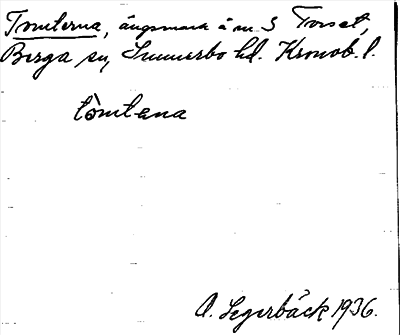 Tomterna, ängsmark å m. S Torset,
Berga sn, Sunnerbo hd. Kronob. l.
tòmtena
A. Segerbäck 1936.